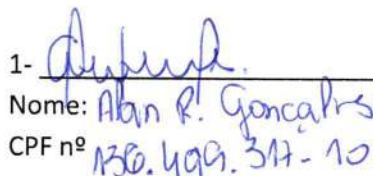 1-
Nome: Alan R. Gonçalves
CPF nº 136.499.317-10